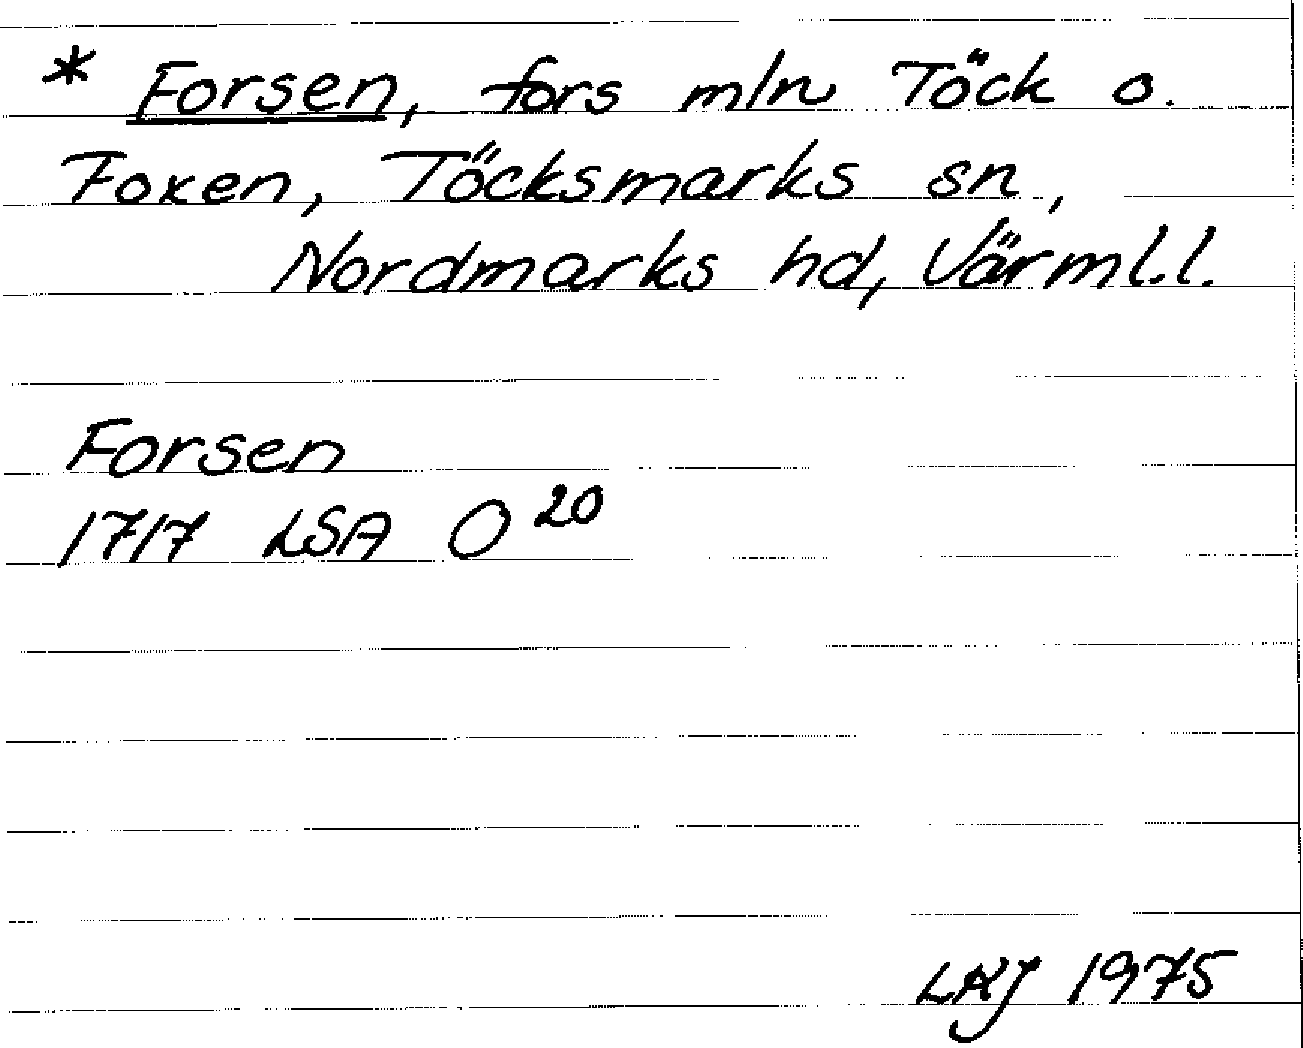 * Forsen, fors mln Töck o.
Foxen, Töcksmarks sn,
Nordmarks hd, Värml.l.
Forsen
1717 LSA O 20
LKJ 1975